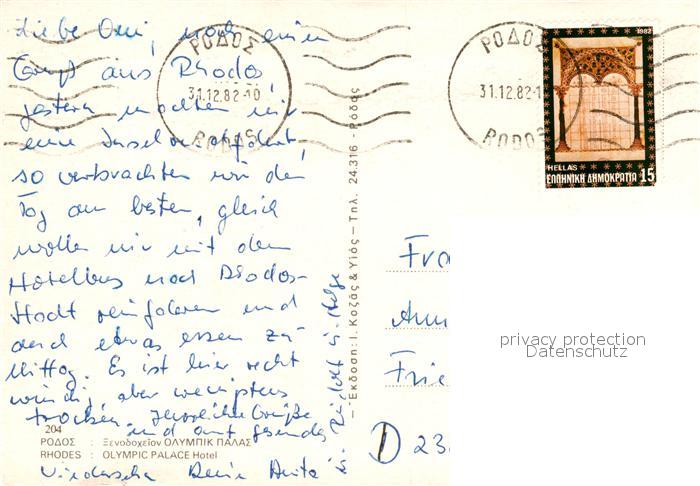 Liebe Omi, noch einen
Gruß aus Rhodos,
gestern machten wir
eine Inselrundfahrt,
so verbrachten wir den
Tag am besten, gleich
wollen wir mit dem
Hotelbus nach Rhodos-
Stadt reinfahren und
dort etwas essen zu
Mittag. Es ist hier recht
windig, aber wenigstens
trocken. Herzliche Grüße
und auf gesundes
Wiedersehn Deine Anita
u. Helge
ΡΟΔΟΣ
31.12.82-10
RODOS
ΡΟΔΟΣ
31.12.82-1
RODOS
1982
HELLAS
ΕΛΛΗΝΙΚΗ ΔΗΜΟΚΡΑΤΙΑ 15
— Έκδοση: Ι. Κοζάς & Υιός — Τηλ. 24.316 - Ρόδος
Fra
Ann
Frie
D 23
privacy protection
Datenschutz
204
ΡΟΔΟΣ : Ξενοδοχεῖον ΟΛΥΜΠΙΚ ΠΑΛΑΣ
RHODES : OLYMPIC PALACE Hotel